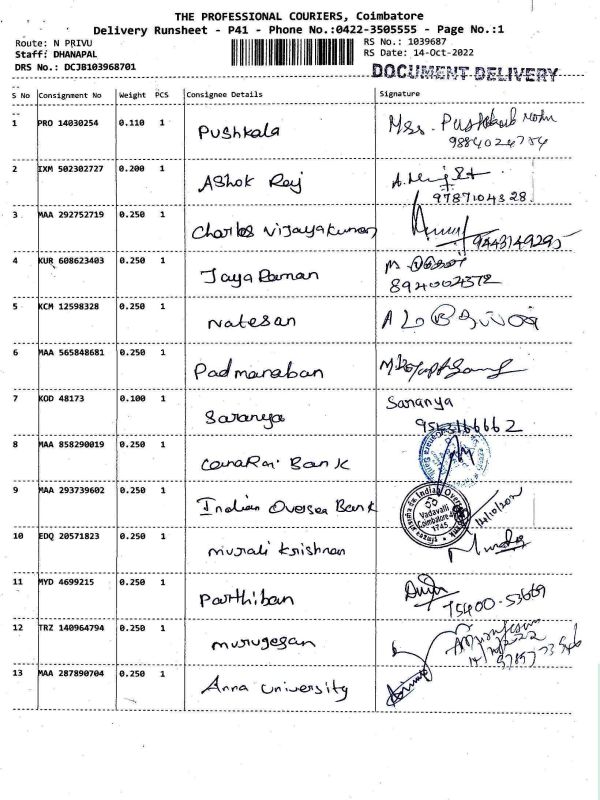 THE PROFESSIONAL COURIERS, Coimbatore
Delivery Runsheet - P41 - Phone No.:0422-3505555 - Page No.:1
Route: N PRIVU
RS No.: 1039687
Staff: DHANAPAL
RS Date: 14-Oct-2022
DRS No.: DCJB103968701
DOCUMENT DELIVERY
S No Consignment No Weight PCS Consignee Details Signature
1 PRO 14030254 0.110 1 Pushkala
2 IXM 502302727 0.200 1 Ashok Raj
9787104328
3 MAA 292752719 0.250 1 Charles Vijayakumar
9443149295
4 KUR 608623403 0.250 1 Jaya Raman
8940002372
5 KCM 12598328 0.250 1 Natesan
6 MAA 565848681 0.250 1 Padmanaban
7 KOD 48173 0.100 1 Saranya Saranya
8 MAA 858290019 0.250 1 Canarai Bank
9 MAA 293739602 0.250 1 Indian Oversea Bank
Vadavalli
Coimbatore
1745
10 EDQ 20571823 0.250 1 murali krishnan
11 MYD 4699215 0.250 1 Parthiban
75400-53669
12 TRZ 140964794 0.250 1 murugesan
13 MAA 287890704 0.250 1 Anna University